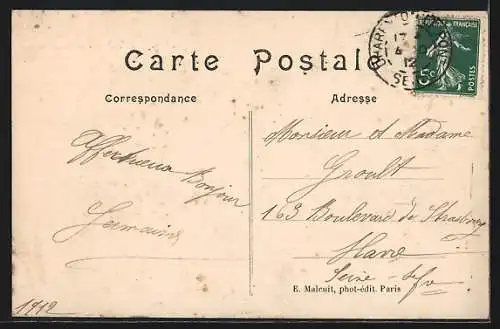 Carte Postale
Correspondance
Adresse
RÉPUBLIQUE FRANÇAISE
5c
POSTES
17
4
12
Affectueux Bonjour
Germaine
1912
Monsieur et Madame
Groult
163 Boulevard de Strasbourg
Havre
Seine-Infre
E. Malcuit, phot-édit. Paris